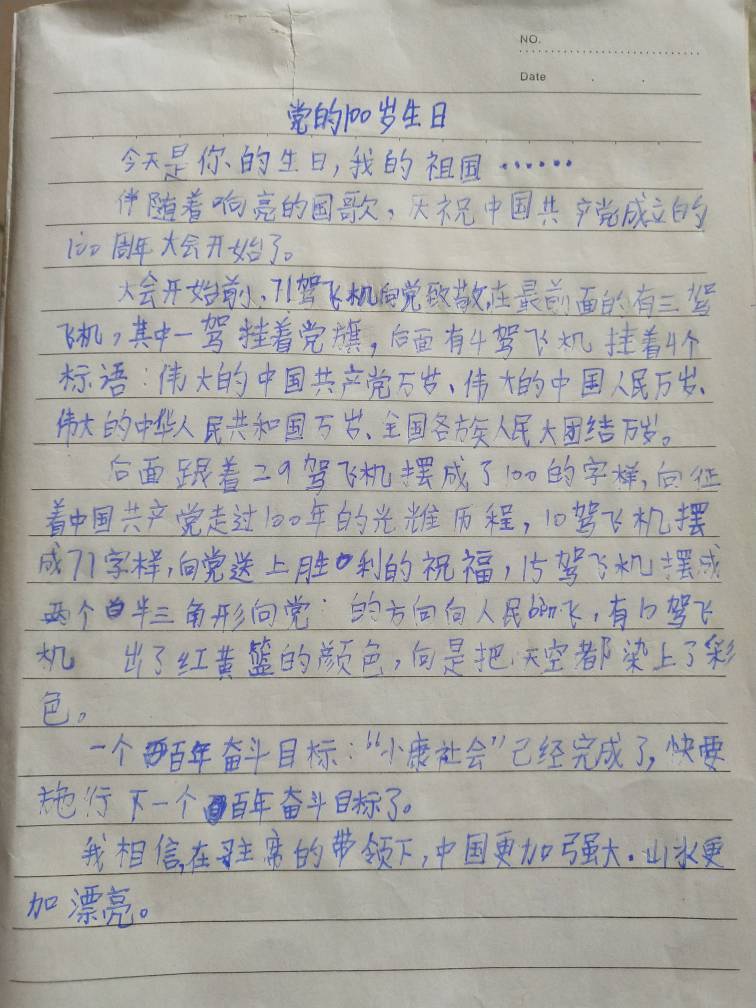 NO.
Date
党的100岁生日
今天是你的生日,我的祖国……
伴随着响亮的国歌,庆祝中国共产党成立的
100周年大会开始了。
大会开始前,71驾飞机向党致敬,在最前面的有三驾
飞机,其中一驾挂着党旗,后面有4驾飞机挂着4个
标语:伟大的中国共产党万岁、伟大的中国人民万岁、
伟大的中华人民共和国万岁、全国各族人民大团结万岁。
后面跟着29驾飞机摆成了100的字样,向征
着中国共产党走过100年的光雄历程,10驾飞机摆
成71字样,向党送上胜利的祝福,15驾飞机摆成
两个半三角形向党的方向向人民飞,有10驾飞
机 出了红黄篮的颜色,向是把天空都染上了彩
色。
一个百年奋斗目标:“小康社会”已经完成了,快要
施行下一个百年奋斗目标了。
我相信,在习主席的带领下,中国更加强大.山水更
加漂亮。